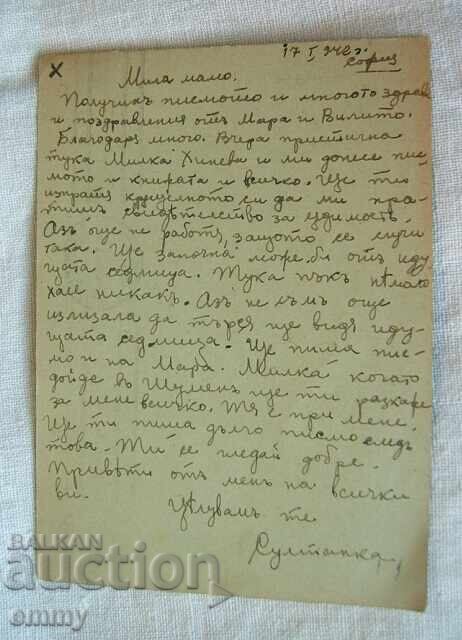 17 I 942 г.
София
X
Мила мамо.
Получихъ писмото и многото здраве
и поздравления отъ Мара и Вилито.
Благодаря много. Вчера пристигна
тука Милка Хинева и ми донесе пис
мото и книгата и всичко. Ще ти
изпратя си да ми пра
тишъ свидетелство за бедность.
Азъ още не работя, защото се случи
така. Ще започна може би отъ иду
щата седмица. Тука пъкъ нѣмало
хасе никакъ. Азъ не съмъ още
излизала да търся ще видя иду
щата седмица. Ще пиша пис
мо и на Мара. Милка когато
дойде въ Шуменъ ще ти разкаже
за мене всичко. Тя е при мене.
Ще ти пиша дълго писмо следъ
това. Ти се гледай добре.
Привѣти отъ менъ на всички
ви.
Цѣлувамъ те
Султанка
BALKAN
auction
emmy